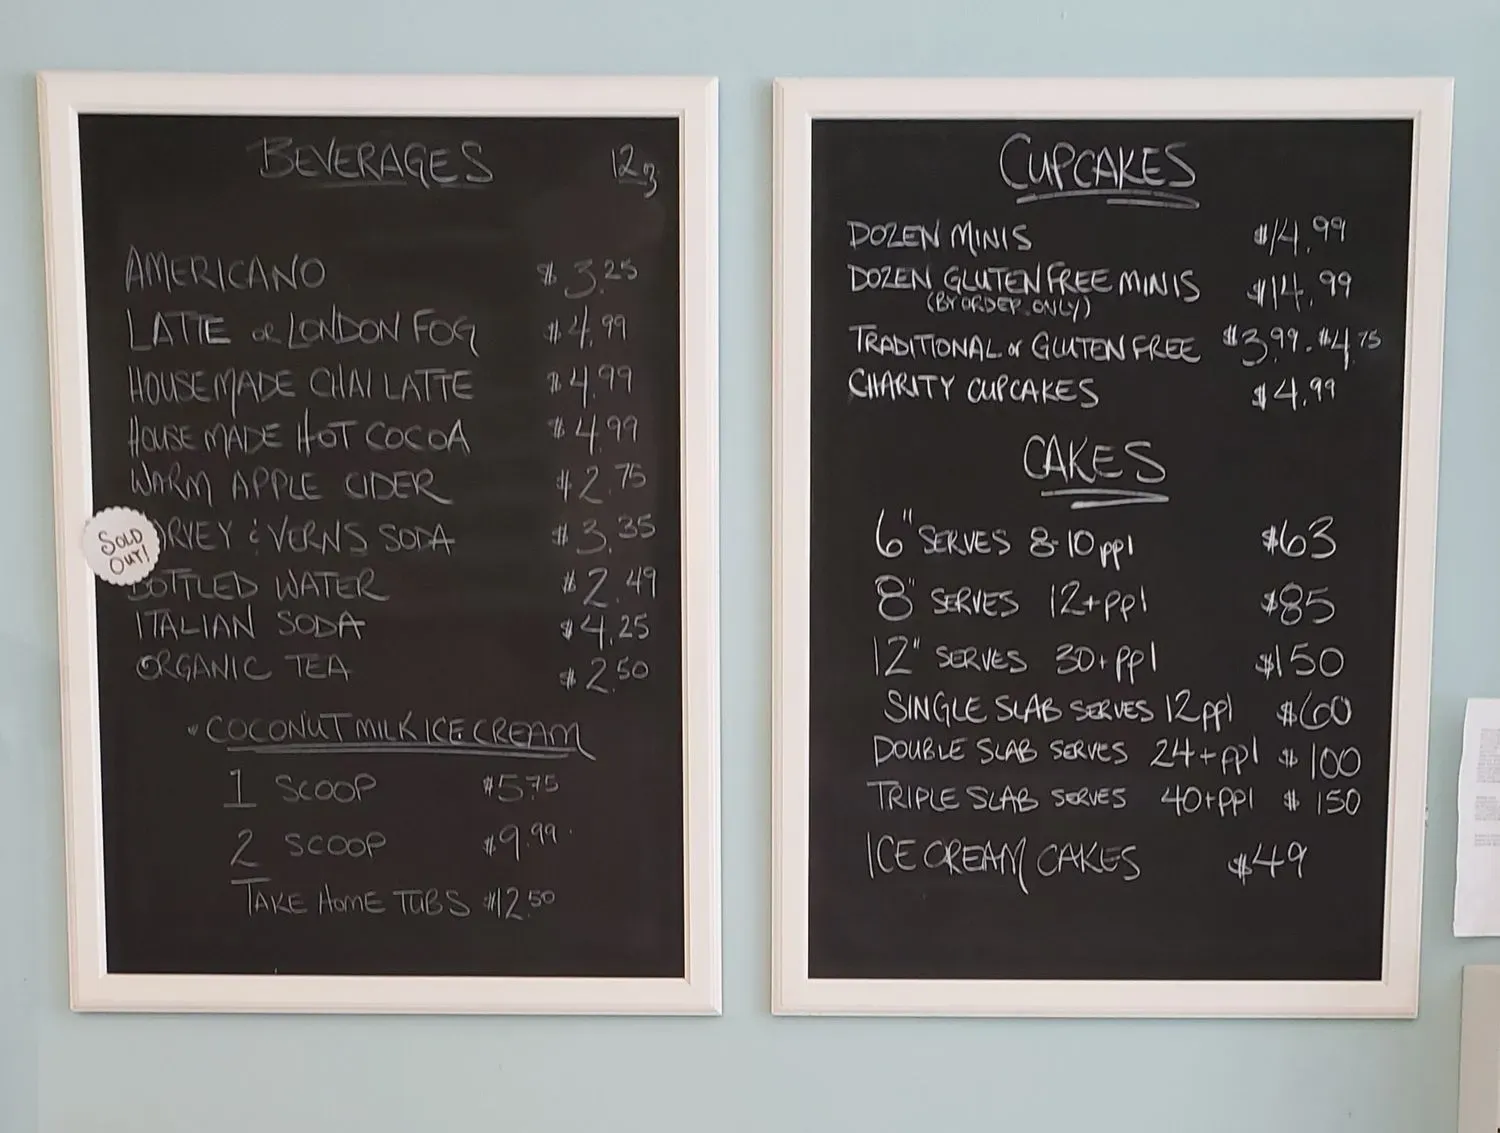 BEVERAGES 12oz
AMERICANO $3.25
LATTE OR LONDON FOG $4.99
HOUSEMADE CHAI LATTE $4.99
HOUSE MADE HOT COCOA $4.99
WARM APPLE CIDER $2.75
SOLD OUT!
RVEY & VERNS SODA $3.35
BOTTLED WATER $2.49
ITALIAN SODA $4.25
ORGANIC TEA $2.50
COCONUT MILK ICE CREAM
1 SCOOP $5.75
2 SCOOP $9.99
TAKE HOME TUBS $12.50
CUPCAKES
DOZEN MINIS $14.99
DOZEN GLUTEN FREE MINIS $14.99
(BY ORDER ONLY)
TRADITIONAL or GLUTEN FREE $3.99 - $4.75
CHARITY CUPCAKES $4.99
CAKES
6" SERVES 8-10 ppl $63
8" SERVES 12+ppl $85
12" SERVES 30+ppl $150
SINGLE SLAB SERVES 12 ppl $60
DOUBLE SLAB SERVES 24+ppl $100
TRIPLE SLAB SERVES 40+ppl $150
ICE CREAM CAKES $49